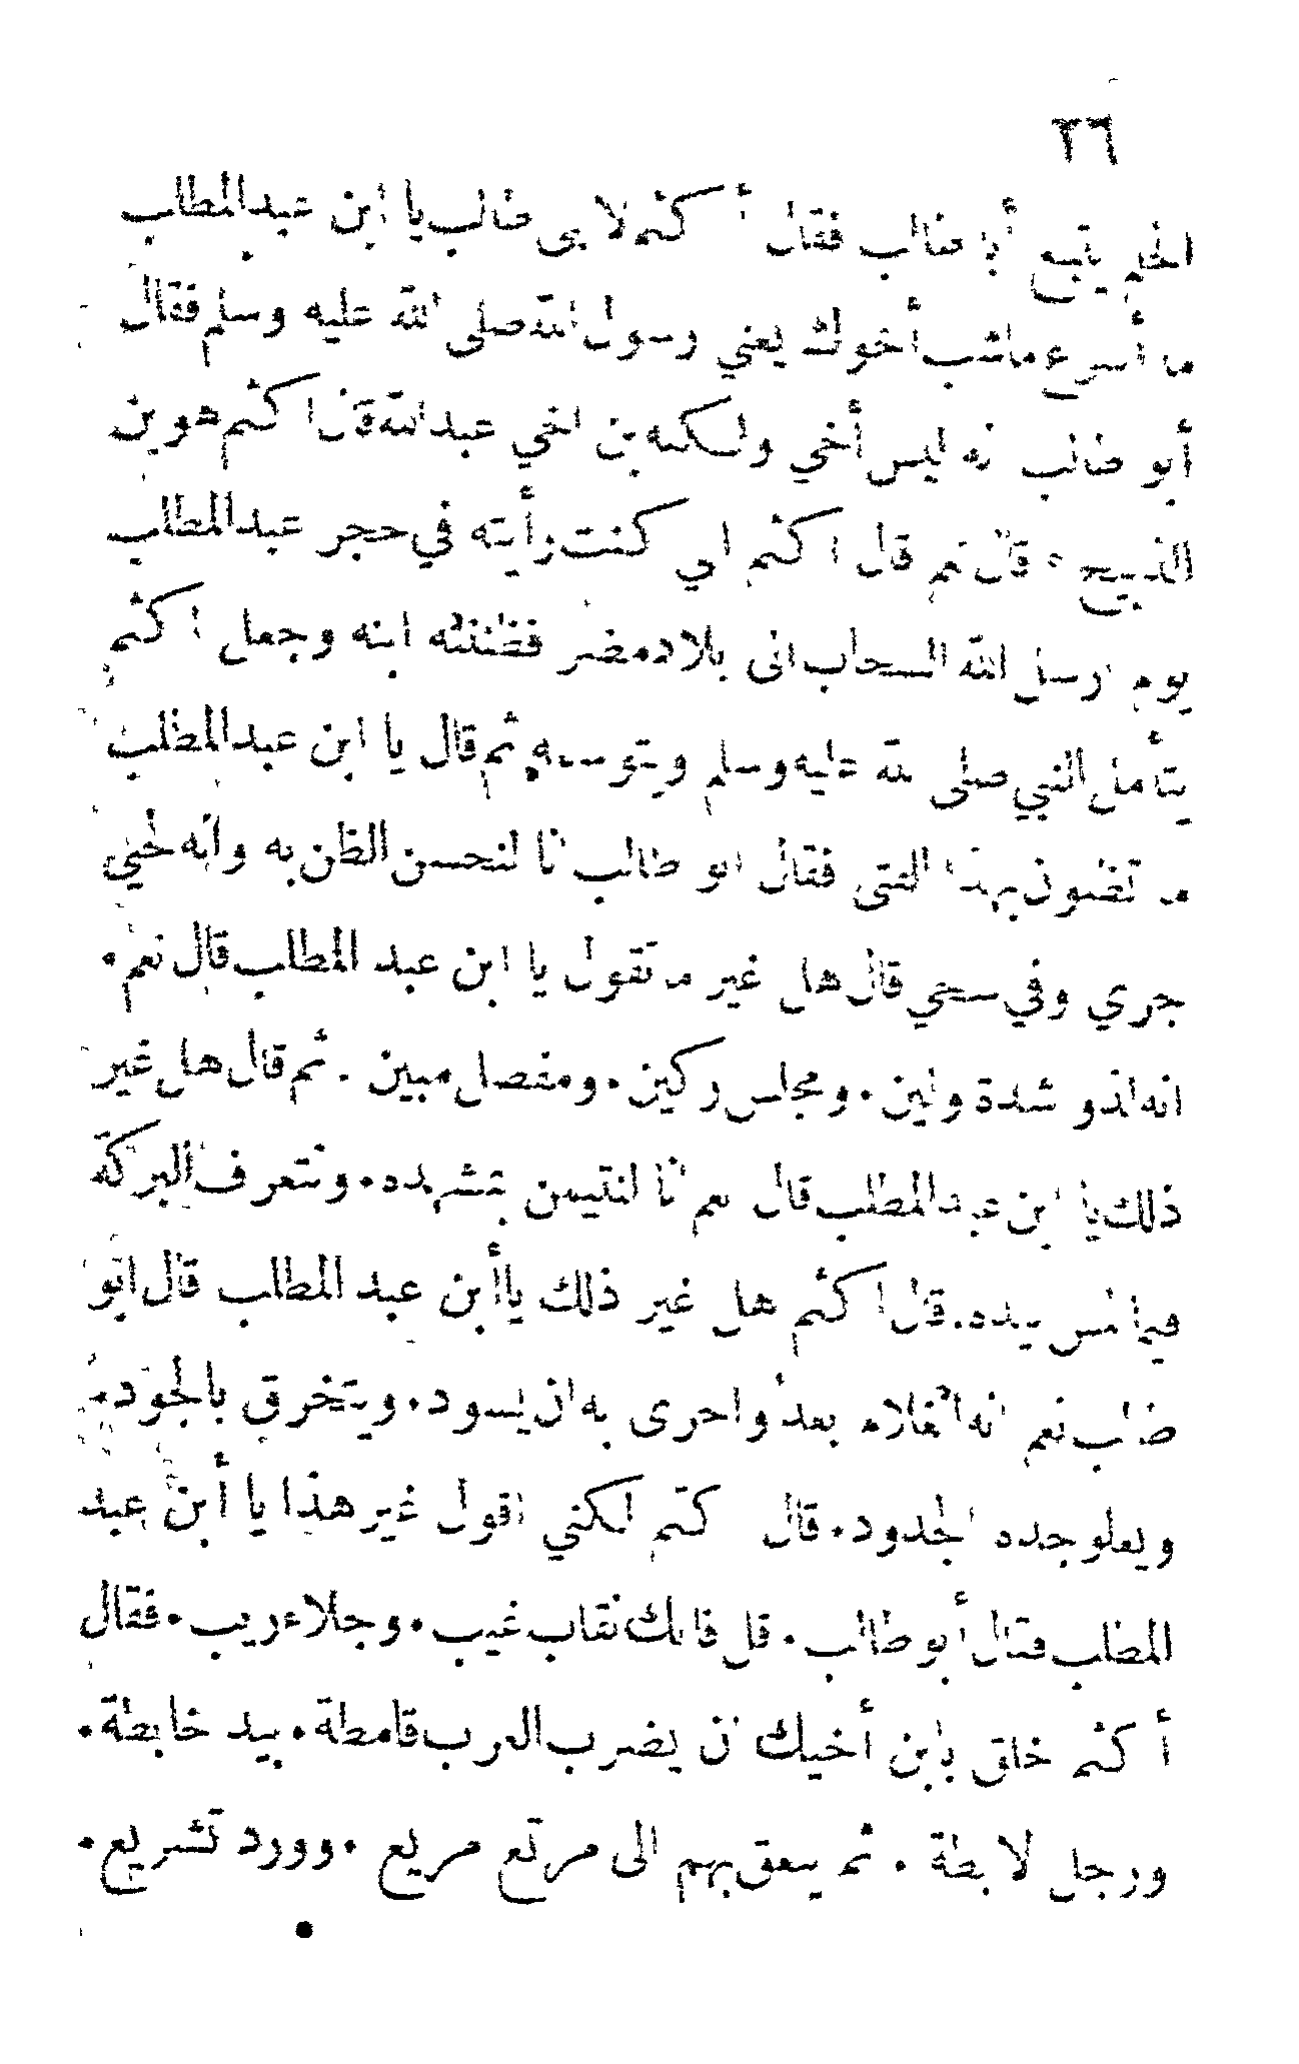 ٢٦
الحلم يتبع أبا طالب فقال أكثم لابي طالب يا ابن عبد المطلب
ما أسرع ماشب أخوك يعني رسول الله صلى الله عليه وسلم فقال
أبو طالب انه ليس أخي ولكنه بن اخي عبد الله قال اكثم هو بن
الذبيح قال نعم قال اكثم اني كنت رأيته في حجر عبد المطلب
يوم ارسل الله السحاب الى بلاد مضر فظننته ابنه وجعل اكثم
يتأمل النبي صلى الله عليه وسلم ويتوسمه ثم قال يا ابن عبد المطلب
ما تظنون بهذا الفتى فقال ابو طالب انا لنحسن الظن به وانه لحيي
جري وفي سخي قال هل غير ما تقول يا ابن عبد المطلب قال نعم.
انه لذو شدة ولين. ومجلس ركين. ومفصل مبين. ثم قال هل غير
ذلك يا ابن عبد المطلب قال نعم انا لنتيمن بمشهده. ونتعرف البركة
فيما لمس بيده. قال اكثم هل غير ذلك يا أبن عبد المطلب قال ابو
طالب نعم انه لغلام بعد واحرى به ان يسود. ويتخرق بالجود.
ويعلو جده الجدود. قال اكثم لكني اقول غير هذا يا أبن عبد
المطلب فقال أبو طالب. قل فانك نقاب غيب. وجلاء ريب. فقال
أكثم خلق بابن أخيك ان يضرب العرب قامطة. بيد خابطة.
ورجل لابطة. ثم ينعق بهم الى مرتع مريع. وورد تشريع.